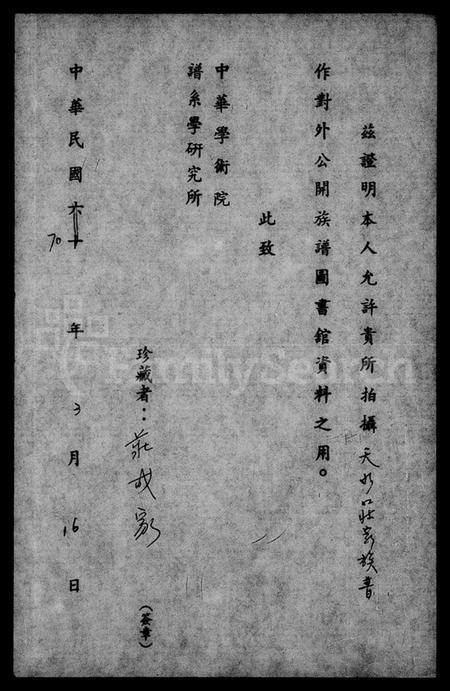 茲證明本人允許貴所拍攝天水莊家族書
作對外公開族譜圖書館資料之用。
此致
中華學術院
譜系學研究所
珍藏者：莊 家 (簽章)
中華民國六十 70 年 3 月 16 日
FamilySearch